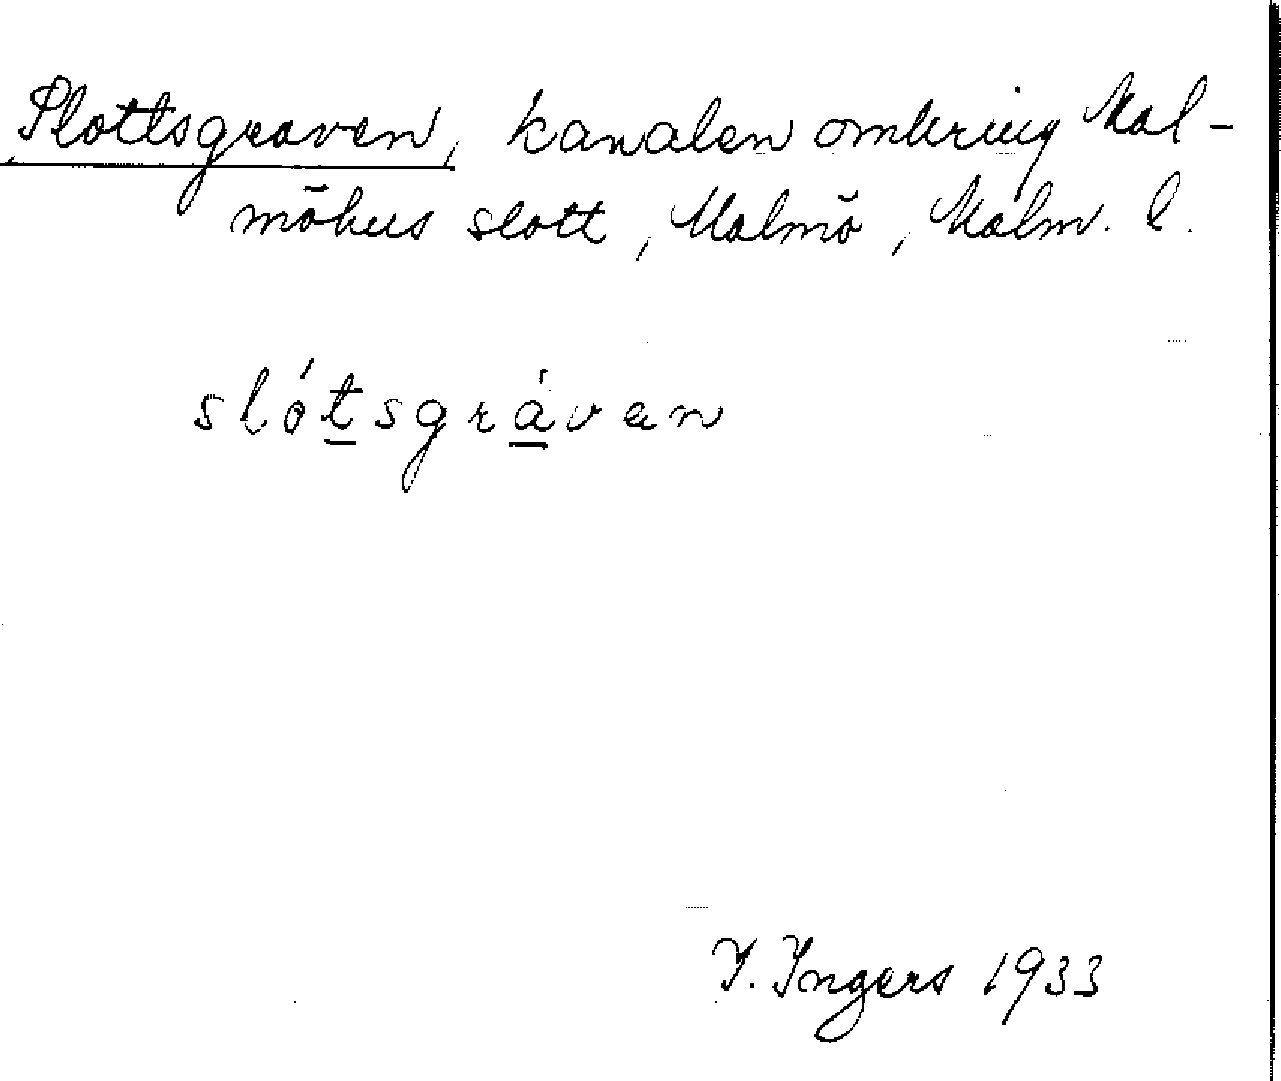 Slottsgraven, kanalen omkring Mal-
möhus slott, Malmö, Malm. l.
slótsgrávan
I. Ingers 1933